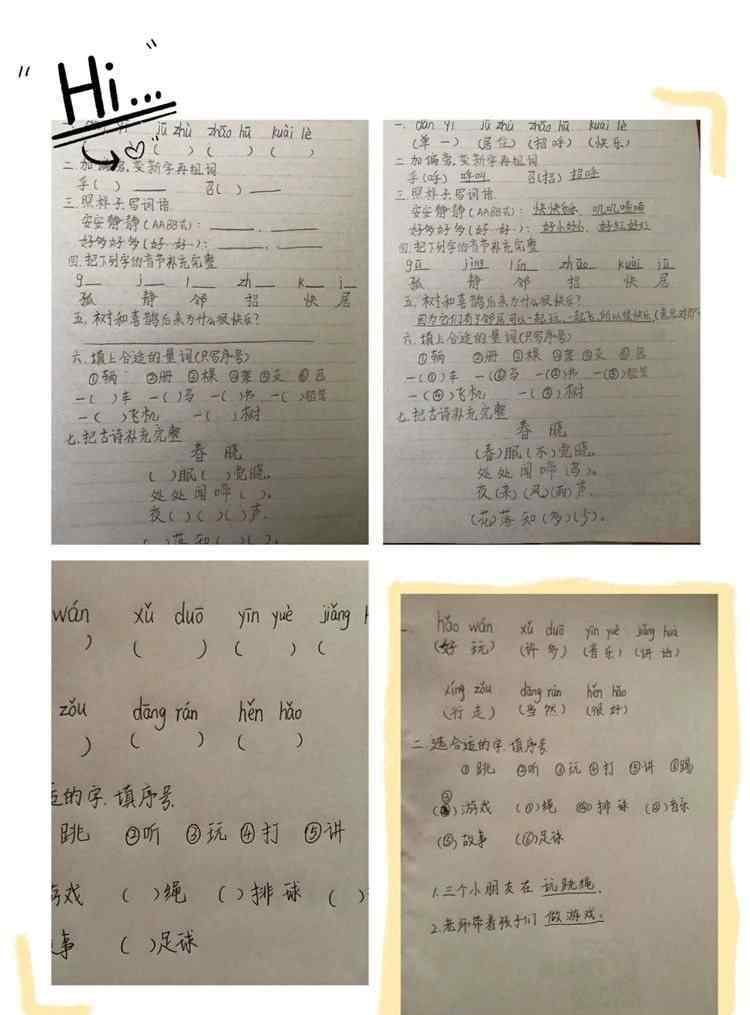 Hi...
jū zhù zhāo hū kuài lè
( ) ( ) ( )
二.加偏旁,变新字再组词
乎( ) 召( )
三.照样子写词语
安安静静(AABB式):
好多好多(好~好~):
四.把下列字的音节补充完整
g j l zh k j
孤 静 邻 招 快 居
五.树和喜鹊后来为什么很快乐?
六.填上合适的量词(只写序号)
①辆 ②册 ③棵 ④架 ⑤支 ⑥只
一( )车 一( )鸟 一( )书 一( )铅笔
一( )飞机 一( )树
七.把古诗补充完整
春 晓
( )眠( )觉晓。
处处闻啼( )。
夜( )( )( )声,
( )落知( )( )。
一. dān yī jū zhù zhāo hū kuài lè
(单一) (居住) (招呼) (快乐)
二.加偏旁,变新字再组词
乎(呼) 呼叫 召(招) 招呼
三.照样子写词语
安安静静(AABB式): 快快乐乐、叽叽喳喳
好多好多(好~好~): 好小好小、好红好红
四.把下列字的音节补充完整
gū jìng lín zhāo kuài jū
孤 静 邻 招 快 居
五.树和喜鹊后来为什么很快乐?
因为它们有了邻居可以一起玩,一起飞,所以很快乐
六.填上合适的量词(只写序号)
①辆 ②册 ③棵 ④架 ⑤支 ⑥只
一(①)车 一(⑥)鸟 一(②)书 一(⑤)铅笔
一(④)飞机 一(③)树
七.把古诗补充完整
春 晓
(春)眠(不)觉晓。
处处闻啼(鸟)。
夜(来)(风)(雨)声,
(花)落知(多)(少)。
wán xǔ duō yīn yuè jiǎng
) ( ) ( ) (
zǒu dāng rán hěn hǎo
) ( ) ( )
的字.填序号
跳 ②听 ③玩 ④打 ⑤讲
游戏 ( )绳 ( )排球 ( )
故事 ( )足球
hǎo wán xǔ duō yīn yuè jiǎng huà
(好玩) (许多) (音乐) (讲话)
xíng zǒu dāng rán hěn hǎo
(行走) (当然) (很好)
二.选合适的字.填序号
①跳 ②听 ③玩 ④打 ⑤讲 ⑥踢
(③)游戏 (①)绳 (④)排球 (②)音乐
(⑤)故事 (⑥)足球
1.三个小朋友在玩跳绳.
2.老师带着孩子们做游戏.